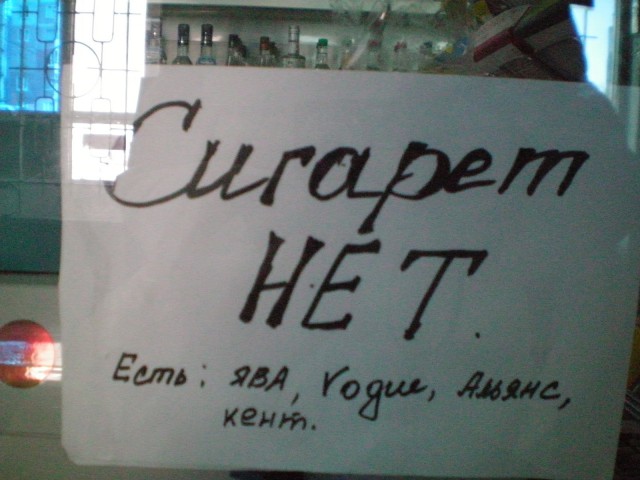 Сигарет
НЕТ.
Есть: ЯВА, Vogue, Альянс,
кент.